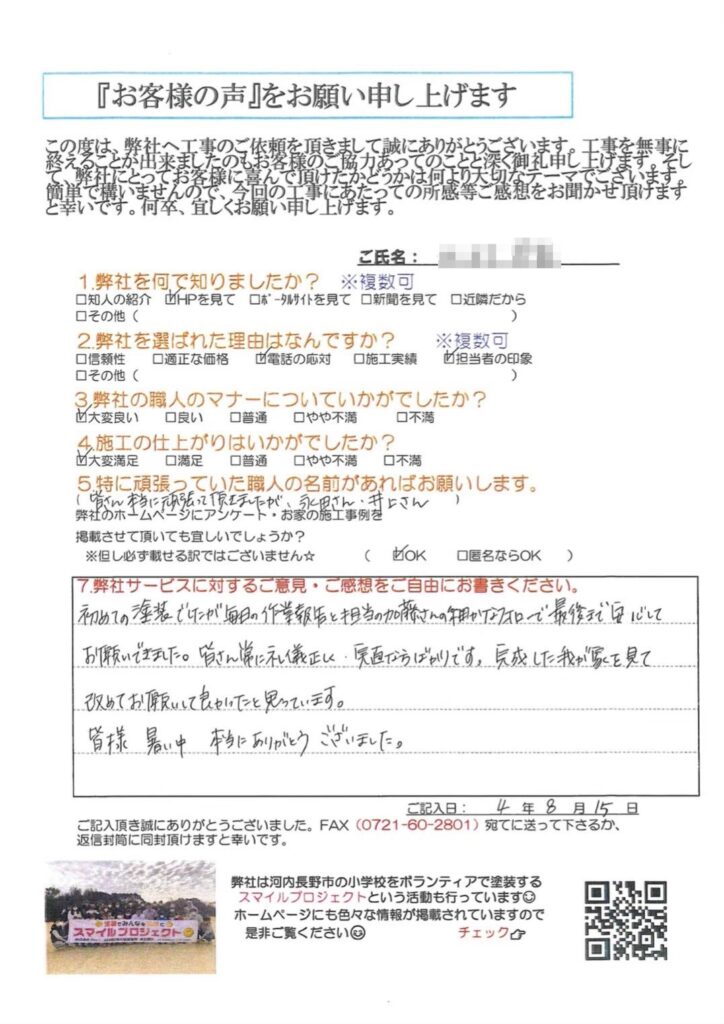 『お客様の声』をお願い申し上げます
この度は、弊社へ工事のご依頼を頂きまして誠にありがとうございます。工事を無事に
終えることが出来ましたのもお客様のご協力あってのことと深く御礼申し上げます。そし
て、弊社にとってお客様に喜んで頂けたかどうかは何より大切なテーマでございます。
簡単で構いませんので、今回の工事にあたっての所感等ご感想をお聞かせ頂けます
と幸いです。何卒、宜しくお願い申し上げます。
ご氏名：
1.弊社を何で知りましたか？ ※複数可
□知人の紹介 ☑HPを見て □ﾎﾟｰﾀﾙｻｲﾄを見て □新聞を見て □近隣だから
□その他（ ）
2.弊社を選ばれた理由はなんですか？ ※複数可
□信頼性 □適正な価格 ☑電話の応対 □施工実績 ☑担当者の印象
□その他（ ）
3.弊社の職人のマナーについていかがでしたか？
☑大変良い □良い □普通 □やや不満 □不満
4.施工の仕上がりはいかがでしたか？
☑大変満足 □満足 □普通 □やや不満 □不満
5.特に頑張っていた職人の名前があればお願いします。
（ 皆さん本当に頑張って頂きましたが、永田さん・井上さん ）
弊社のホームページにアンケート・お家の施工事例を
掲載させて頂いても宜しいでしょうか？
※但し必ず載せる訳ではございません☆ （ ☑OK □匿名ならOK ）
7.弊社サービスに対するご意見・ご感想をご自由にお書きください。
初めての塗装でしたが毎日の作業報告と担当の加藤さんの細かなフォローで最後まで安心して
お願いできました。皆さん常に礼儀正しく、実直な方ばかりです。完成した我が家を見て
改めてお願いして良かったと思っています。
皆様 暑い中 本当にありがとうございました。
ご記入日： 4 年 8 月 15 日
ご記入頂き誠にありがとうございました。FAX（0721-60-2801）宛てに送って下さるか、
返信封筒に同封頂けますと幸いです。
弊社は河内長野市の小学校をボランティアで塗装する
スマイルプロジェクトという活動も行っています☺
ホームページにも色々な情報が掲載されていますので
是非ご覧ください☺ チェック☞
スマイルプロジェクト